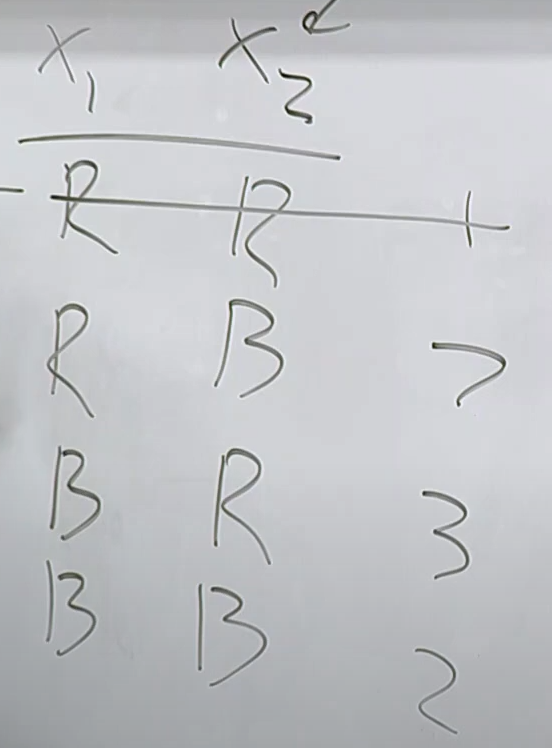 X₁ X₂
R R 1
R B 7
B R 3
B B 2